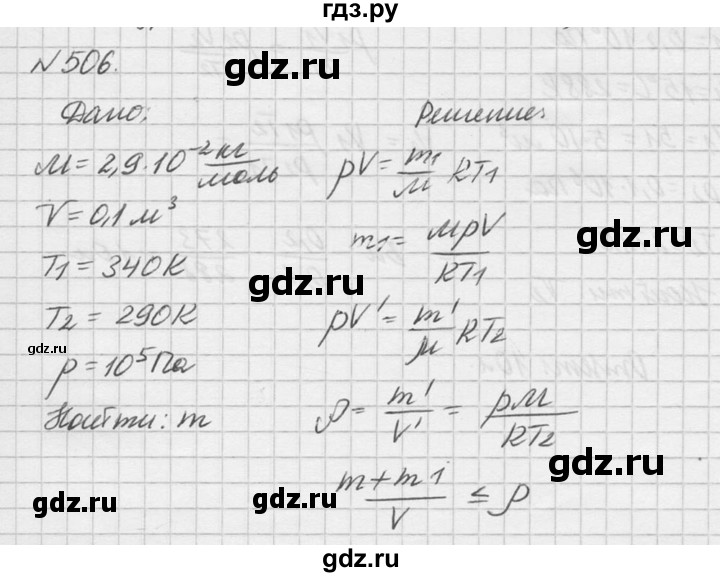 гдз.ру
N 506.
Дано:
M = 2,9·10⁻² кг/моль
V = 0,1 м³
T₁ = 340 К
T₂ = 290 К
p = 10⁵ Па
Найти: m
Решение:
pV = m₁/M RT₁
m₁ = MpV/RT₁
pV' = m'/M RT₂
ρ = m'/V' = pM/RT₂
(m + m₁)/V ≤ ρ
gdz.ru
gdz.ru
gdz.ru
gdz.ru
gdz.ru
gdz.ru
gdz.ru
gdz.ru